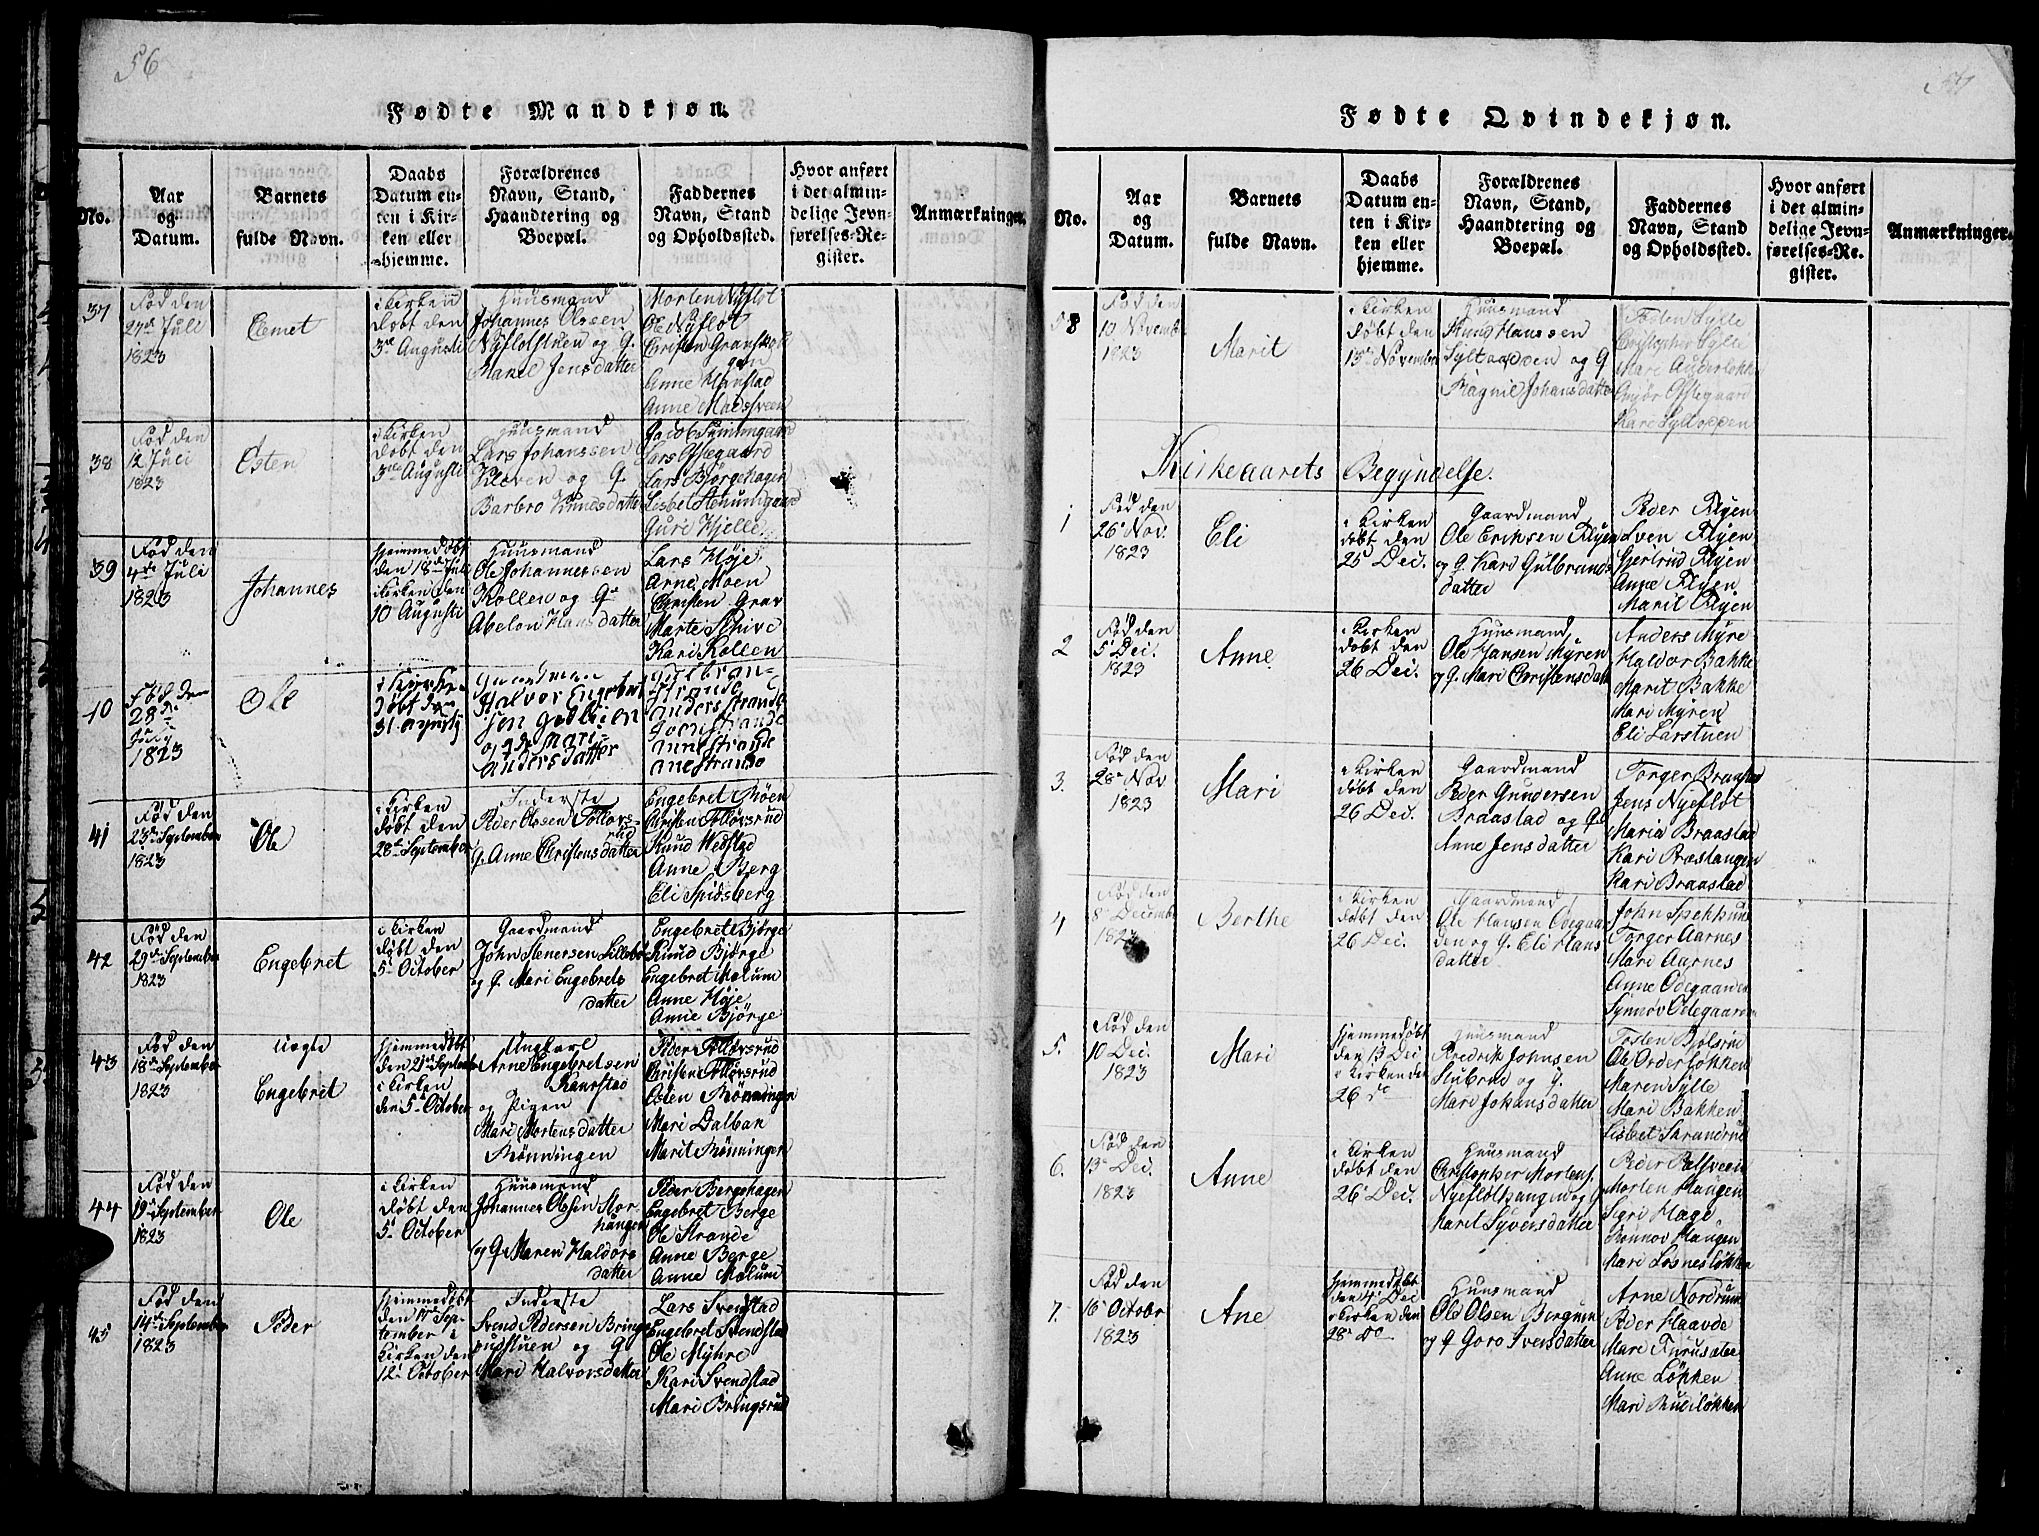 56
Fødte Mandkjøn.
No.
Aar
og
Datum.
Barnets
fulde Navn.
Daabs
Datum en-
ten i Kir-
ken eller
hjemme.
Forældrenes
Navn, Stand,
Haandtering og
Boepæl.
Faddernes
Navn, Stand
og Opholdssted.
Hvor anført
i det almin-
delige Jevn-
førelses-Re-
gister.
Anmærkninger.
37
Fød den
27de Juli
1823
Eemet
i Kirken
døbt den
3de Augusti
Huusmand
Johannes Olssen
Nyfløtstuen og G.
Marit Jensdatter
Morten Nyfløt
Ole Nyfløt
Christen
Anne Hanstad
Anne Madsveen
38
Fød den
12 Juli
1823
Østen
i Kirken
døbt den
3de Augusti
Huusmand
Lars Johanssen
Kloven og G.
Barbro
Jacob
Lars Østegaard
Lars Bjørgehagen
Lisbet Stenumgaard
Guri Hjelle
39
Fød den
4de Juli
1823
Johannes
Hjemmedøbt
den 18de Juli
i Kirken den
10 Augusti
Huusmand
Ole Johannessen
Kollen og G.
Abelon Hansdatter
Lars Høje
Arne Moen
Christen Grav
Marte Schive
Kari Kollen
40
Fød den
28de
1823
Ole
i Kirke
døbt den
31 Augusti
Gaardmand
Halvor Engebret
sen
og G. Mari
Andersdatter
Gulbran
Strande
Anders Strande
Strande
Anne Strande
Ane Strande
41
Fød den
23de September
1823
Ole
i Kirken
døbt den
28de September
Inderste
Peder Olssen Tollovs-
rud
G. Anne Christensdatter
Engebret Moen
Christen Tollovsrud
Knud Wedstad
Anne Berg
Eli Spidsberg
42
Fød den
29de September
1823
Engebret
i Kirken
døbt den
5te October
Gaardmand
John Stenersen Lillebø
og G. Mari Engebrets
datter
Engebret Bjørge
Knud Bjørge
Engebret Melum
Anne Høje
Anne Bjørge
43
Fød den
18de September
1823
Uægte
Engebret
Hjemmedøbt
den 21de September
i Kirken
den 5te October
Ungkarl
Arne Engebretsen
Kaarstad
og Pigen
Mari Mortensdatter
Rønningen
Peder Tollovsrud
Christen Tollovsrud
Østen Rønningen
Mari Dalbak
Marit Rønningen
44
Fød den
19de September
1823
Ole
i Kirken
døbt den
5te October
Huusmand
Johannes Olssen Stor-
haugen
og G. Maren Haldors
datter
Peder Bergehagen
Engebret Berge
Ole Strande
Anne Berge
Anne Melum
45
Fød den
14de September
1823
Peder
Hjemmedøbt
den 17de Sep-
tember i
Kirken den
12te October
Inderste
Svend Pedersen Brings
rudstuen og G.
Mari Halvorsdatter
Lars Svendstad
Engebret Svendstad
Ole Myhre
Kari Svendstad
Mari Bringsrud
57
Fødte Qvindekjøn.
No.
Aar
og
Datum.
Barnets
fulde Navn.
Daabs
Datum en-
ten i Kir-
ken eller
hjemme.
Forældrenes
Navn, Stand,
Haandtering og
Boepæl.
Faddernes
Navn, Stand
og Opholdssted.
Hvor anført
i det almin-
delige Jevn-
førelses-Re-
gister.
Anmærkninger.
58
Fød den
10 Novemb
1823
Marit
i Kirken
døbt den
13de November
Huusmand
Knud Hanssen
Syltoppen og G
Magnil Johansdatter
Tosten Sylle
Christopher Sylle
Mari Anderløkke
Østegaard
Kari Syltoppen
Kirkeaarets Begyndelse.
1
Fød den
26 Nov.
1823
Eli
i Kirken
døbt den
25 Dec.
Gaardmand
Ole Eriksen Flyen
og G. Kari Gulbrands
datter
Peder Flyen
Sven Flyen
Gjertrud Flyen
Anne Flyen
Marit Flyen
2
Fød den
5te Dec.
1823
Anne
i Kirken
døbt den
26 Dec.
Huusmand
Ole Hansen Myren
og G. Mari Christensdatt
Anders Myre
Haldor Bakke
Marit Bakke
Mari Myren
Eli Larstuen
3.
Fød den
28de Nov
1823
Mari
i Kirken
døbt den
26 Dec.
Gaardmand
Peder Gundersen
Braastad og G.
Anne Jensdatter
Torger Braastad
Jens Nyefløt
Maria Braastad
Kari Præstangen
Kari Braastad
4
Fød den
8de Decembr
1823
Berthe
i Kirken
døbt den
26 Dec.
Gaardmand
Ole Hansen Ødegaar
den og G. Eli Hans
datter
John Spekhuus
Torger Aarnes
Mari Aarnes
Anne Ødegaarden
Synnøv Ødegaarden
5.
Fød den
10 Dec.
1823
Mari
Hjemmedøbt
den 13 Dec
i Kirken den
26 do
Huusmand
Fredrik Johnsen
Stubrud og G.
Mari Johansdatter
Tosten Bjølsrud
Ole Orderløkken
Maren Sylle
Mari Bakken
Lisbet Sarandrud
6.
Fød den
13de Dec.
1823
Anne
i Kirken
døbt den
26 Dec.
Huusmand
Christopher Mortens.
Nyefløthaugen og G
Marit Syversdatter
Peder
Morten Haugen
Sigri Hage
Rønnov Haugen
Mari Losnesløkken
7.
Fød den
16 Octobr
1823
Ane
Hjemmedøbt
den 4de Dec
i Kirken den
28de Do
Huusmand
Ole Olsen Bergum
og G Goro Iversdatter
Arne Nordrum
Peder Haavde
Mari Furusæter
Anne Løkken
Mari Rudiløkken